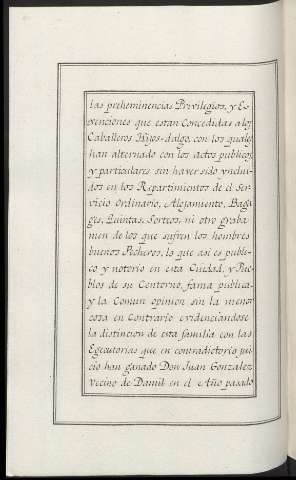 las preheminencias Privilegios, y Es-
xenciones que estan Concedidas a los
Caballeros Hijos-dalgo, con los quales
han alternado con los actos publicos
y particulares sin haver sido ynclui-
dos en los Repartimientos de el Ser-
vicio Ordinario, Alojamiento, Baga-
ges, Quintas, Sorteos, ni otro graba-
men de los que sufren los hombres
buenos Pecheros, lo que asi es publi-
co y notorio en esta Ciudad, y Pue-
blos de su Contorno, fama publica
y la Comun opinion sin la menor
cosa en Contrario evidenciandose
la distincion de esta familia con las
Egecutorias que en contradictorio jui-
cio han ganado Don Juan Gonzalez
Vecino de Daniel en el Año pasado